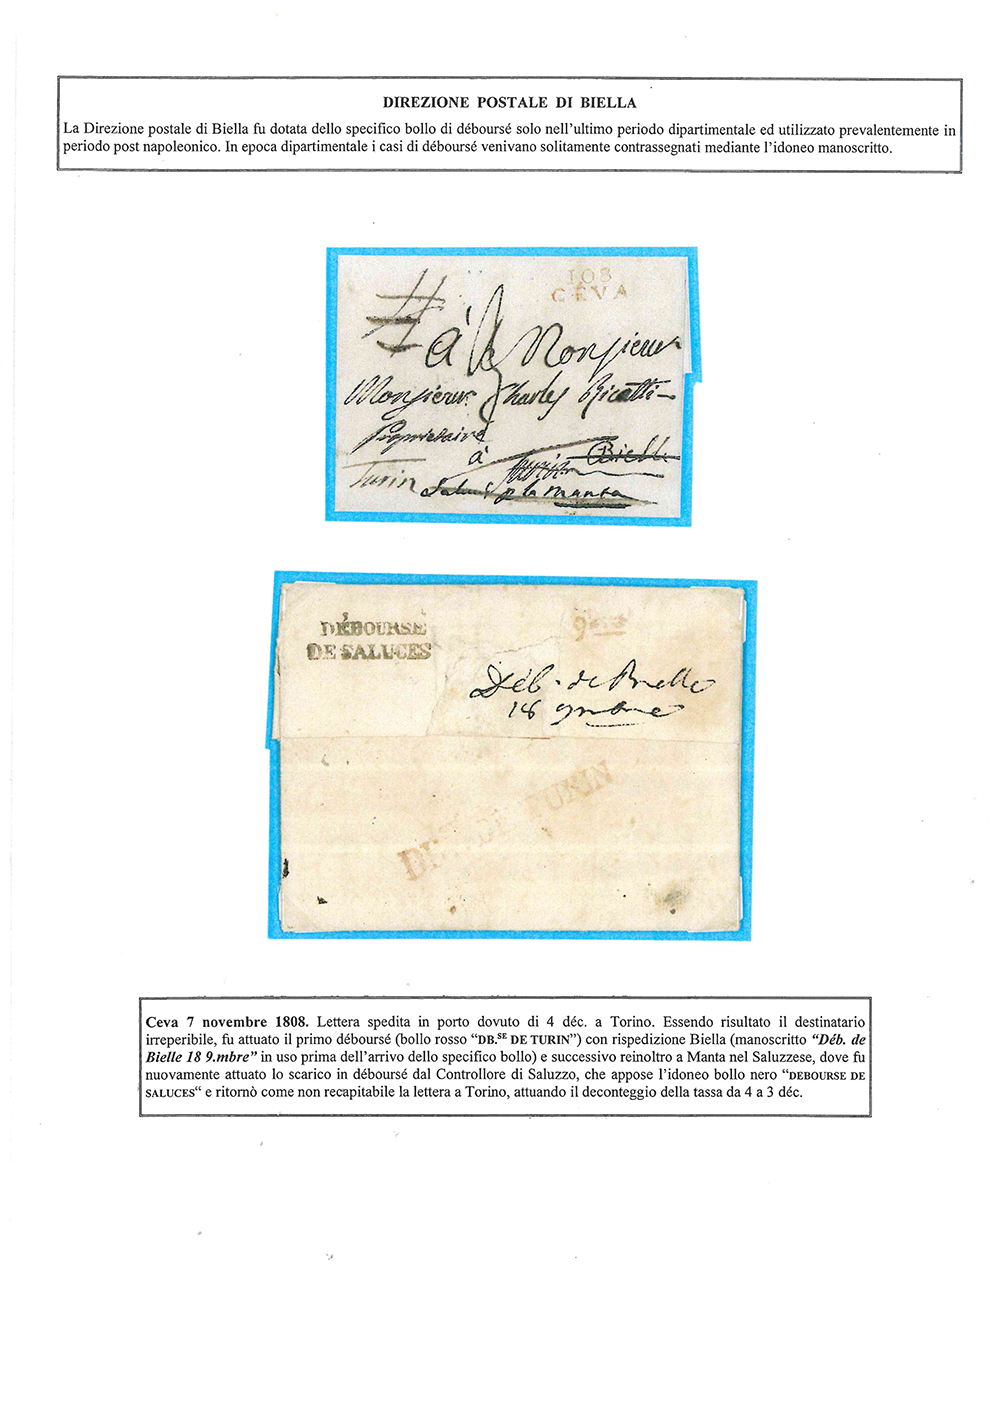 DIREZIONE POSTALE DI BIELLA
La Direzione postale di Biella fu dotata dello specifico bollo di déboursé solo nell'ultimo periodo dipartimentale ed utilizzato prevalentemente in
periodo post napoleonico. In epoca dipartimentale i casi di déboursé venivano solitamente contrassegnati mediante l'idoneo manoscritto.
108
CEVA
à Monsieur
Monsieur Charles Ricatti
Proprietaire
à Turin Bielle
Turin
Saluces p la Manta
DÉBOURSÉ
DE SALUCES
Déb. de Bielle
18 9mbre
DE TURIN
Ceva 7 novembre 1808. Lettera spedita in porto dovuto di 4 déc. a Torino. Essendo risultato il destinatario
irreperibile, fu attuato il primo déboursé (bollo rosso "DB.SE DE TURIN") con rispedizione Biella (manoscritto "Déb. de
Bielle 18 9.mbre" in uso prima dell'arrivo dello specifico bollo) e successivo reinoltro a Manta nel Saluzzese, dove fu
nuovamente attuato lo scarico in déboursé dal Controllore di Saluzzo, che appose l'idoneo bollo nero "DEBOURSE DE
SALUCES" e ritornò come non recapitabile la lettera a Torino, attuando il deconteggio della tassa da 4 a 3 déc.